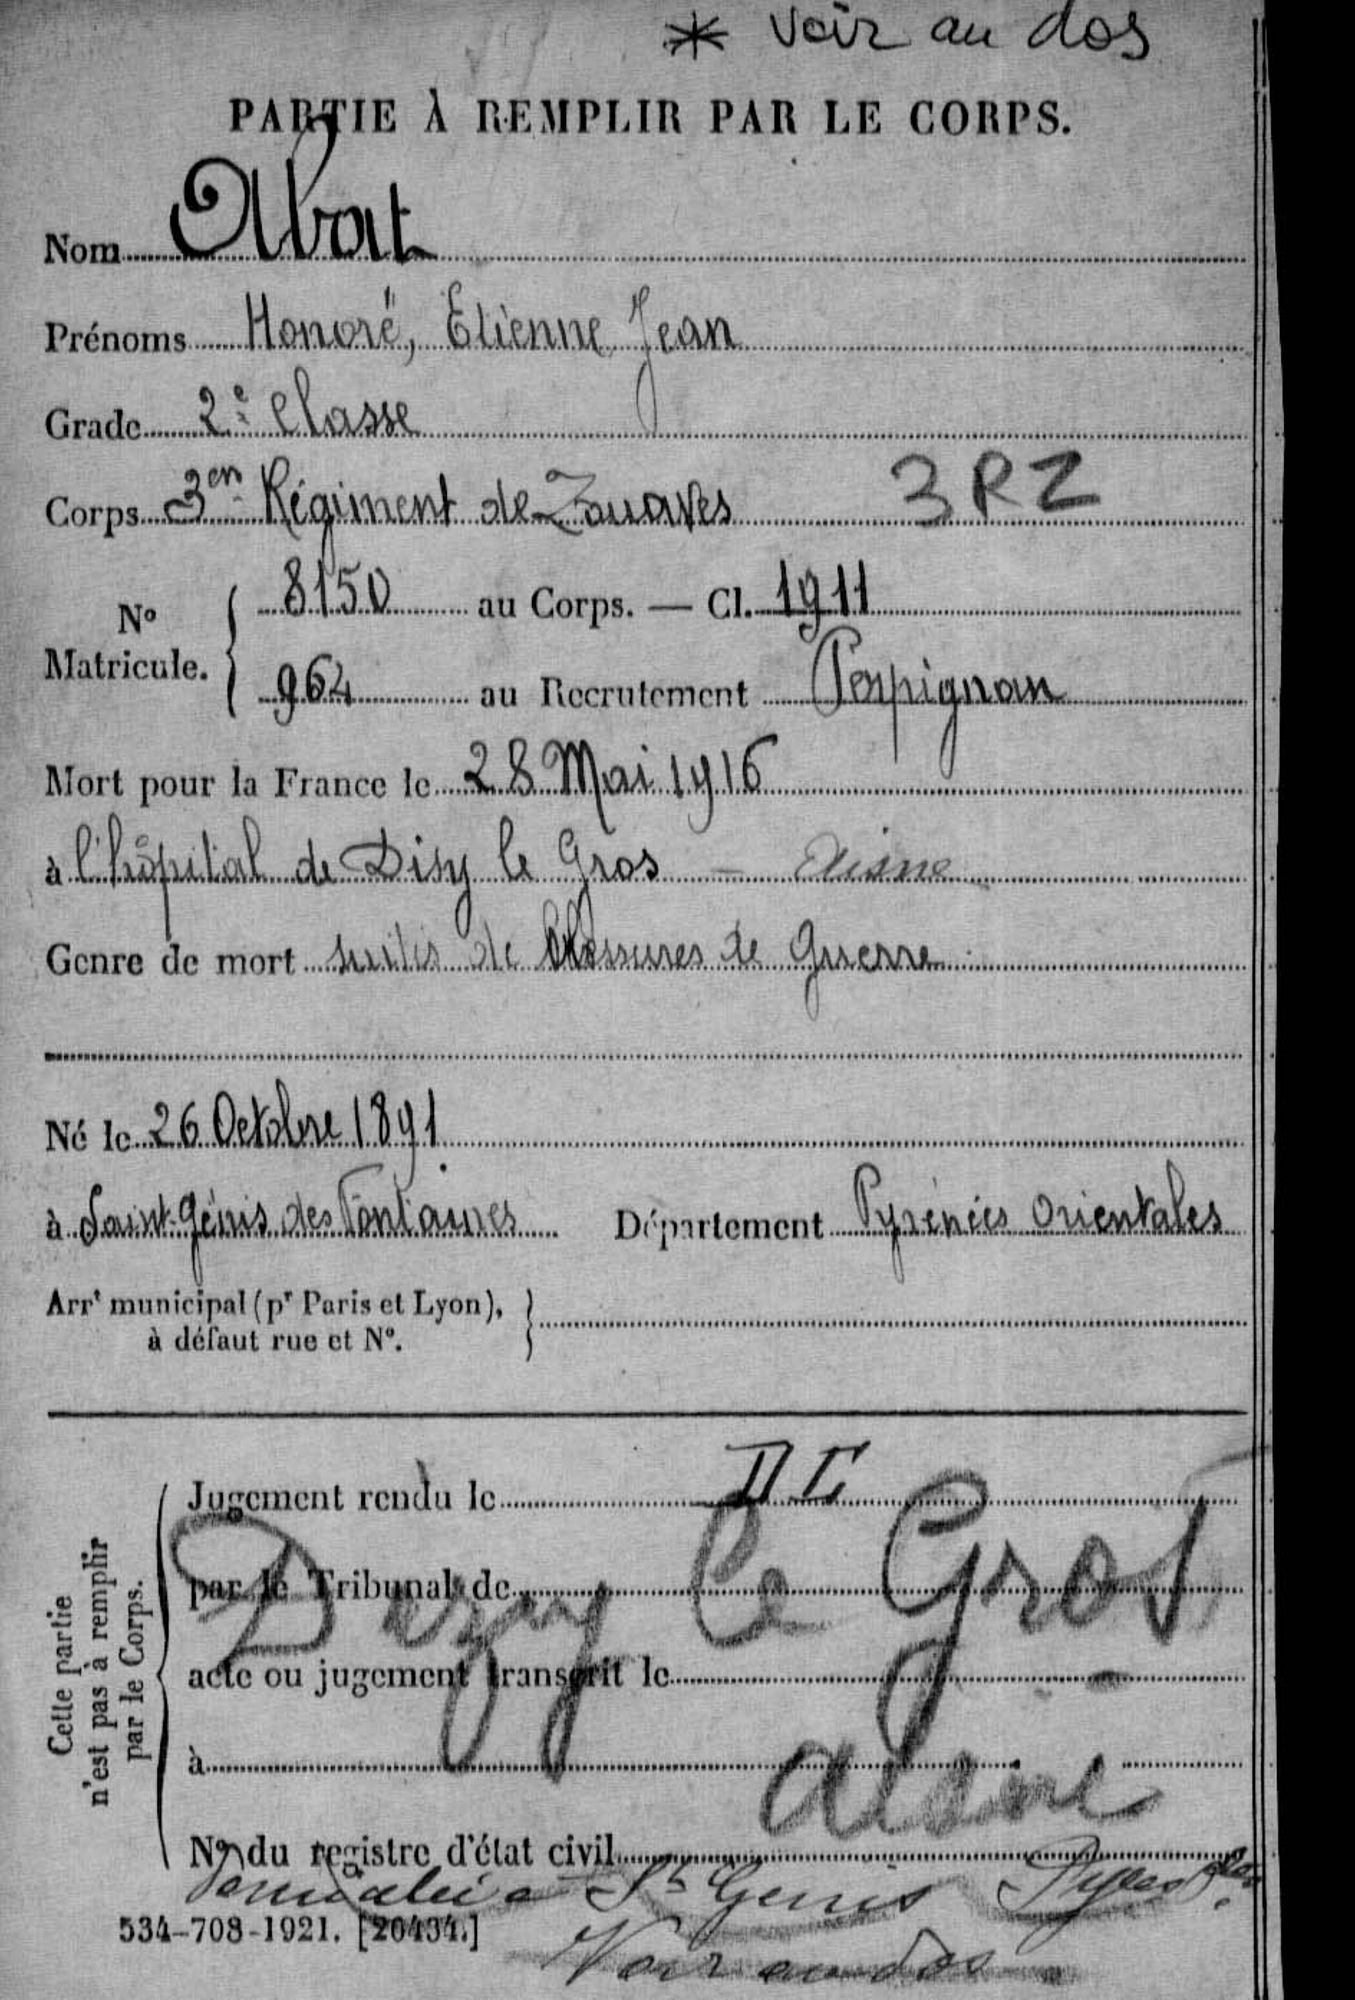 * Voir au dos
PARTIE À REMPLIR PAR LE CORPS.
Nom Abat
Prénoms Honoré, Etienne Jean
Grade 2e Classe
Corps 3en Régiment de Zouaves 3 R Z
No Matricule. { 8150 au Corps. — Cl. 1911
964 au Recrutement Perpignan
Mort pour la France le 28 Mai 1916
à l'hôpital de Disy le Gros – Aisne
Genre de mort suites de Blessures de Guerre
Né le 26 Octobre 1891
à Saint-Génis des Fontaines Département Pyrénées Orientales
Arrt municipal (pr Paris et Lyon), à défaut rue et No. }
Cette partie n'est pas à remplir par le Corps.
Jugement rendu le
par le Tribunal de
Dizy le Gros
acte ou jugement transcrit le
à
Aisne
No du registre d'état civil
Domicilié à St Genis
534-708-1921. [20434.]
Voir au dos